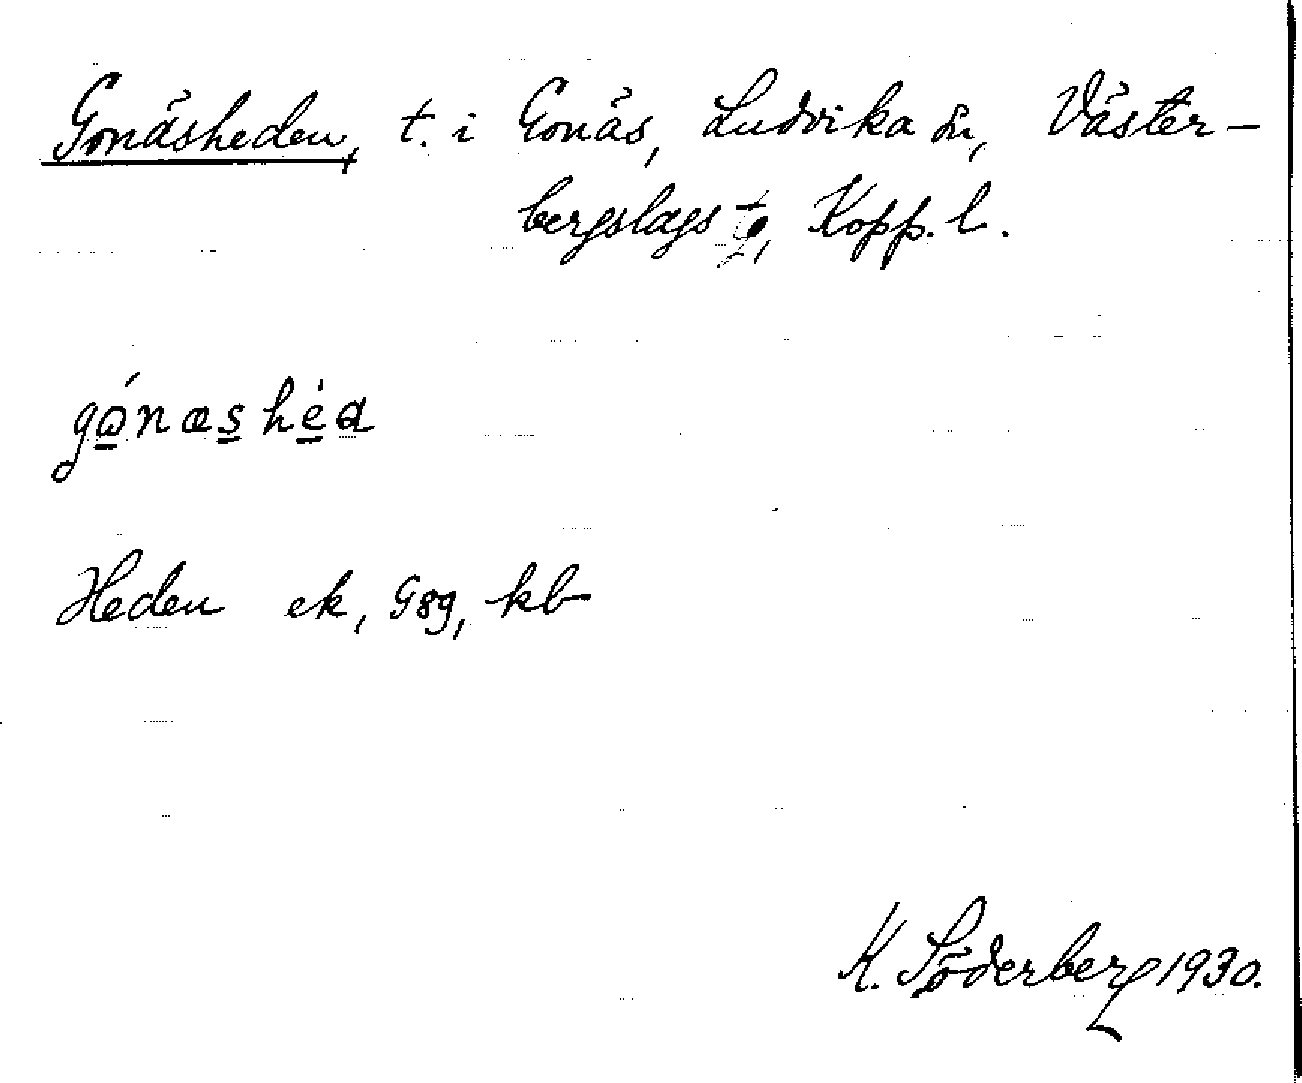 Gonäsheden, t. i Gonäs, Ludvika sn, Väster-
bergslags Kopp. l.
gónæshèd
Heden ek, G89, kb
K. Söderberg 1930.